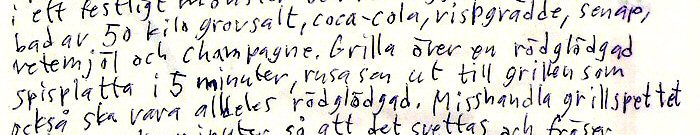 i ett festligt
bad av 50 kilo grovsalt, coca-cola, vispgrädde, senap,
vetemjöl och champagne. Grilla över en rödglödgad
spisplatta i 5 minuter, rusa sen ut till grillen som
också ska vara alldeles rödglödgad. Misshandla grillspettet
minuter så att det svettas och fräser